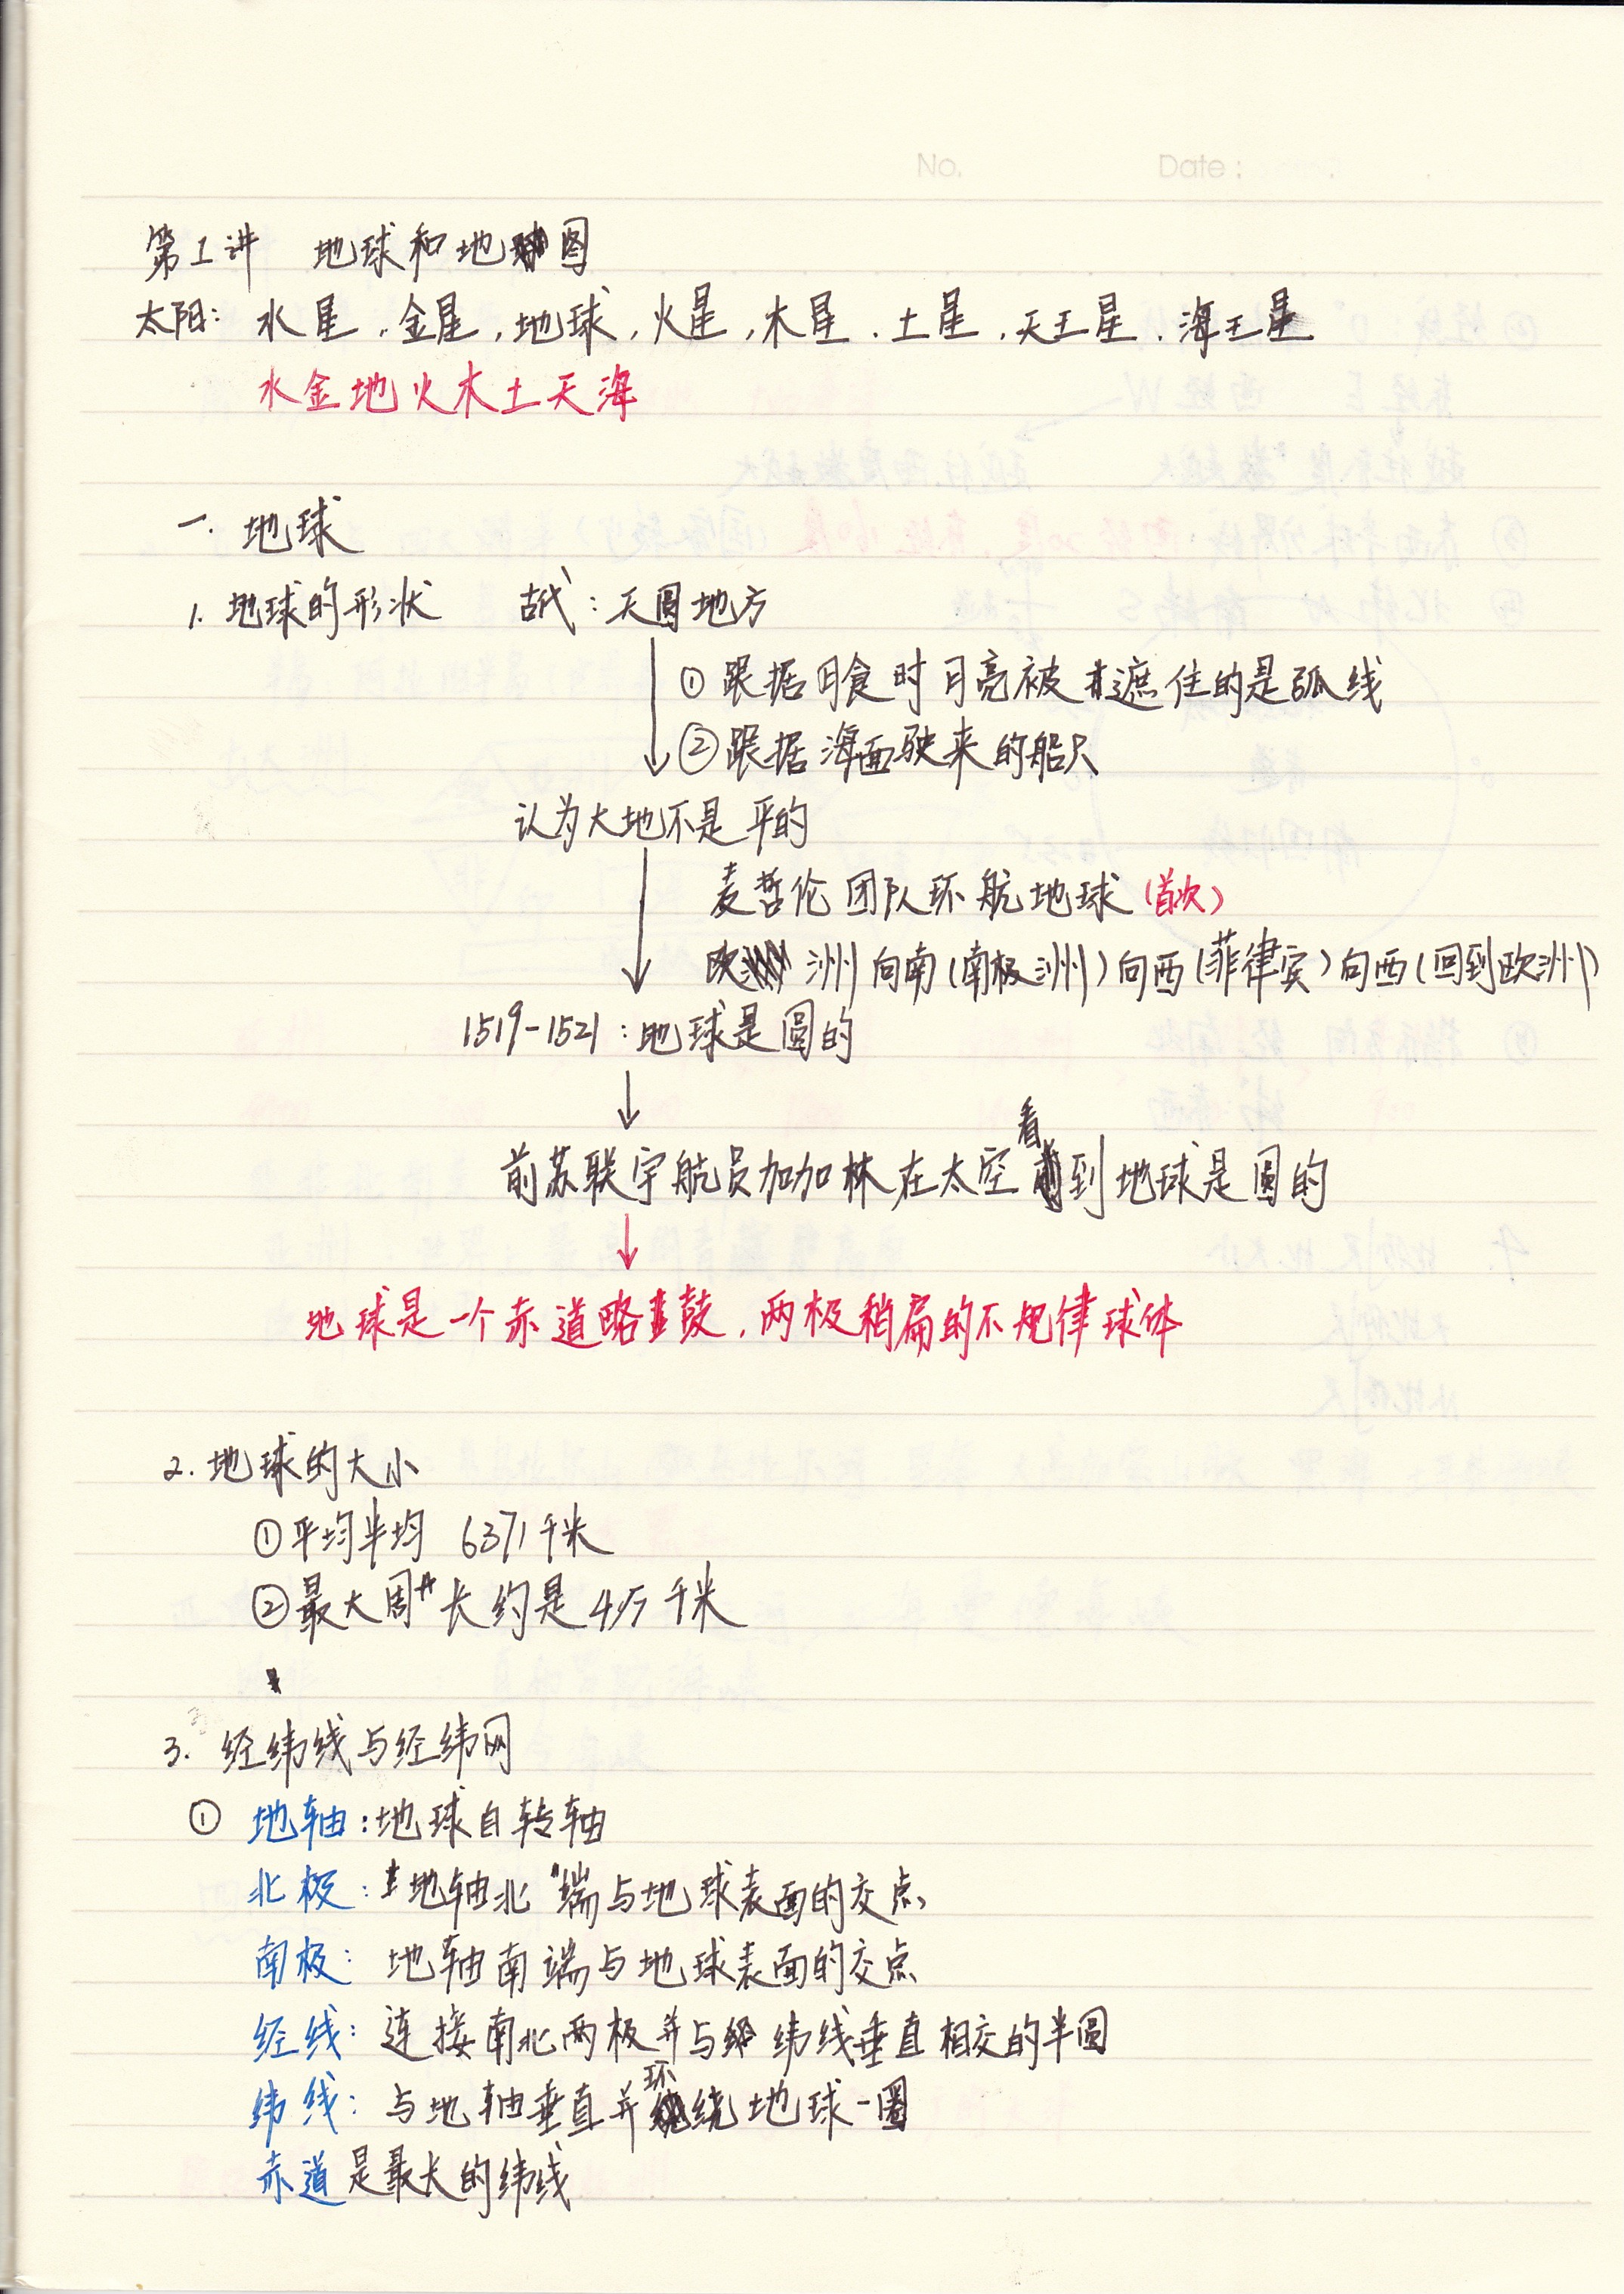 No. Date:
第1讲 地球和地图
太阳: 水星,金星,地球,火星,木星.土星,天王星.海王星
水金地火木土天海
一.地球
1.地球的形状 古代:天圆地方
①跟据月食时月亮被遮住的是弧线
②跟据海面驶来的船只
认为大地不是平的
麦哲伦团队环航地球(首次)
欧洲向南(南极洲)向西(菲律宾)向西(回到欧洲)
1519-1521:地球是圆的
前苏联宇航员加加林在太空看到地球是圆的
地球是一个赤道略鼓,两极稍扁的不规律球体
2.地球的大小
①平均半均 6371千米
②最大周长约是4万千米
3.经纬线与经纬网
① 地轴:地球自转轴
北极:地轴北端与地球表面的交点
南极:地轴南端与地球表面的交点
经线:连接南北两极并与纬线垂直相交的半圆
纬线:与地轴垂直并环绕地球一圈
赤道是最长的纬线